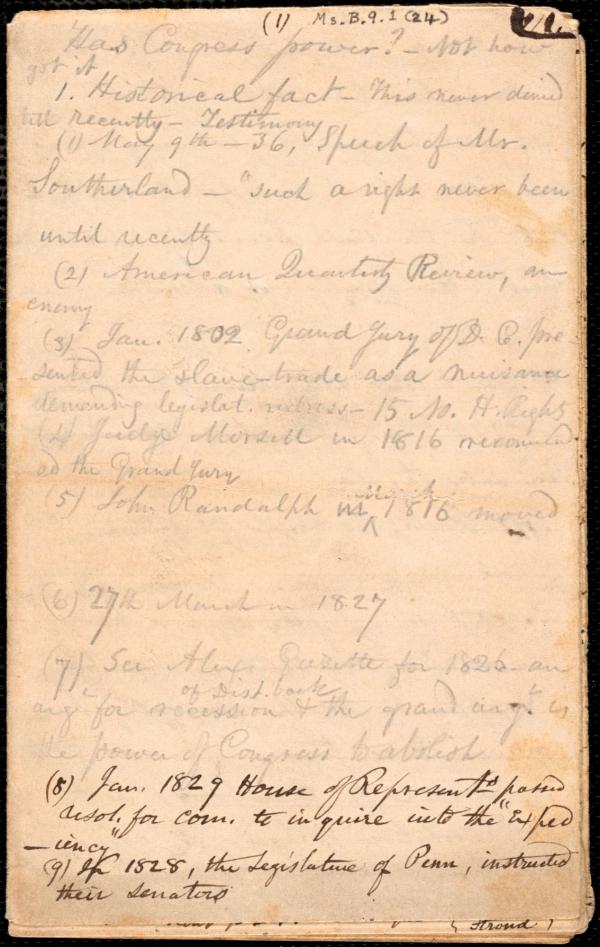 (1) Ms. B. 9. 1 (24)
Has Congress power? - Not how
got it
1. Historical fact - This never denied
till recently - Testimony
(1) May 9th - 36, Speech of Mr.
Southerland - "such a right never been
until recently
(2) American Quarterly Review, an
enemy
(3) Jan. 1802 Grand Jury of D. C. pre-
sented the slave-trade as a nuisance
demanding legislat. redress - 15 No. H. Rights
(4) Judge Morsell in 1816 recommend
ed the Grand Jury
(5) John Randolph in March 1816 moved
(6) 27th March in 1827
(7) See Alex. Gazette for 1826 - an
arg. for recession of Dist. back & the grand arg. is
the power of Congress to abolish
(8) Jan. 1829 House of Representts passed
resol. for com. to inquire into the "Exped
-iency"
(9) In 1828, the Legislature of Penn, instructed
their senators
(Stroud)